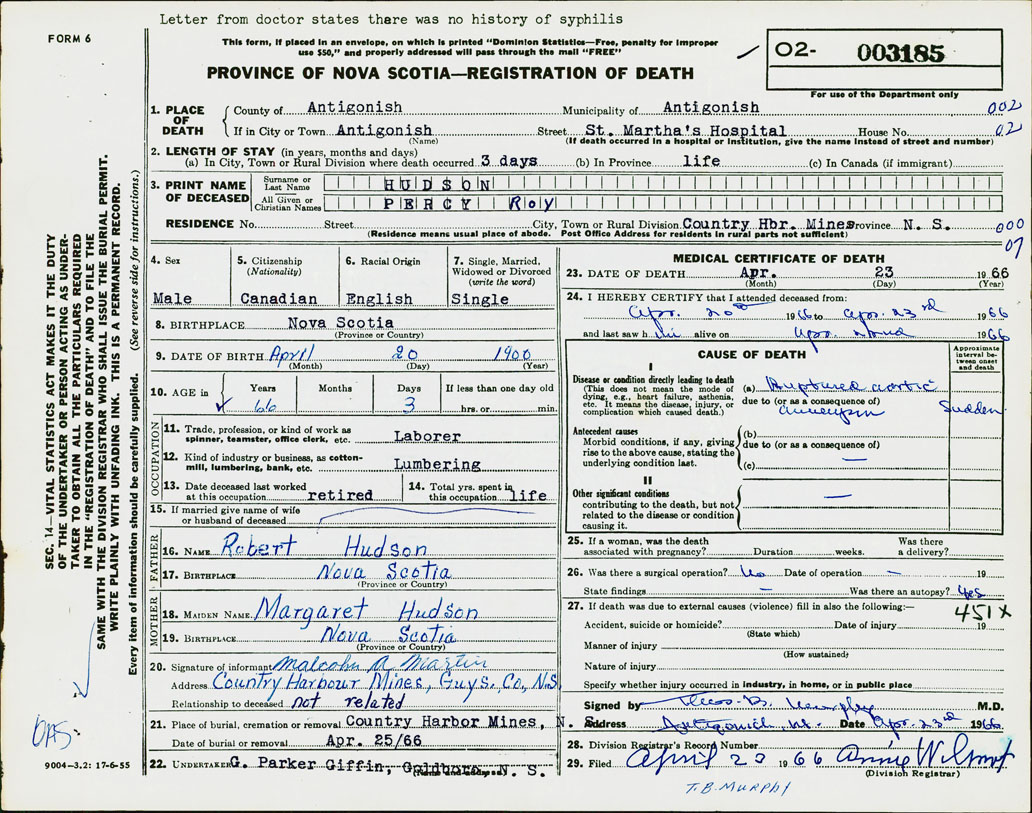 Letter from doctor states there was no history of syphilis
FORM 6
This form, if placed in an envelope, on which is printed "Dominion Statistics—Free, penalty for improper
use $50," and properly addressed will pass through the mail "FREE"
PROVINCE OF NOVA SCOTIA—REGISTRATION OF DEATH
02- 003185
For use of the Department only
1. PLACE OF DEATH
County of Antigonish Municipality of Antigonish 002
If in City or Town Antigonish Street St. Martha's Hospital House No. 02
(Name) (If death occurred in a hospital or institution, give the name instead of street and number)
2. LENGTH OF STAY (in years, months and days)
(a) In City, Town or Rural Division where death occurred 3 days (b) In Province life (c) In Canada (if immigrant)
3. PRINT NAME OF DECEASED
Surname or Last Name HUDSON
All Given or Christian Names PERCY Roy
RESIDENCE No. Street City, Town or Rural Division Country Hbr. Mines Province N. S. 000
(Residence means usual place of abode. Post Office Address for residents in rural parts not sufficient) 07
4. Sex
Male
5. Citizenship
(Nationality)
Canadian
6. Racial Origin
English
7. Single, Married,
Widowed or Divorced
(write the word)
Single
8. BIRTHPLACE Nova Scotia
(Province or Country)
9. DATE OF BIRTH April 20 1900
(Month) (Day) (Year)
10. AGE in Years Months Days If less than one day old
66 3 hrs. or min.
OCCUPATION
11. Trade, profession, or kind of work as
spinner, teamster, office clerk, etc. Laborer
12. Kind of industry or business, as cotton-
mill, lumbering, bank, etc. Lumbering
13. Date deceased last worked
at this occupation retired
14. Total yrs. spent in
this occupation life
15. If married give name of wife
or husband of deceased
FATHER
16. NAME Robert Hudson
17. BIRTHPLACE Nova Scotia
(Province or Country)
MOTHER
18. MAIDEN NAME Margaret Hudson
19. BIRTHPLACE Nova Scotia
(Province or Country)
20. Signature of informant Malcolm A Martin
Address Country Harbour Mines, Guys. Co, N.S
Relationship to deceased not related
21. Place of burial, cremation or removal Country Harbor Mines, N. S.
Date of burial or removal Apr. 25/66
22. UNDERTAKER G. Parker Giffin, Goldboro, N. S.
(Name and address)
MEDICAL CERTIFICATE OF DEATH
23. DATE OF DEATH Apr. 23 1966
(Month) (Day) (Year)
24. I HEREBY CERTIFY that I attended deceased from:
Apr. 20th 1966 to Apr. 23rd 1966
and last saw him alive on Apr. 1966
CAUSE OF DEATH
Approximate
interval be-
tween onset
and death
I
Disease or condition directly leading to death
(This does not mean the mode of
dying, e.g., heart failure, asthenia,
etc. It means the disease, injury, or
complication which caused death.)
(a) Ruptured aortic
due to (or as a consequence of)
aneurysm Sudden
Antecedent causes
Morbid conditions, if any, giving
rise to the above cause, stating the
underlying condition last.
(b)
due to (or as a consequence of)
(c) —
II
Other significant conditions
contributing to the death, but not
related to the disease or condition
causing it.
—
25. If a woman, was the death
associated with pregnancy? Duration weeks. Was there
a delivery?
26. Was there a surgical operation? No Date of operation — 19
State findings — Was there an autopsy? Yes
27. If death was due to external causes (violence) fill in also the following:—
451X
Accident, suicide or homicide? Date of injury 19
(State which)
Manner of injury
(How sustained)
Nature of injury
Specify whether injury occurred in industry, in home, or in public place
Signed by Thos. B. Murphy M.D.
Address Antigonish, N.S. Date Apr. 23rd 1966
28. Division Registrar's Record Number
29. Filed April 23 1966 Annie Wilmot
(Division Registrar)
T.B. MURPHY
SEC. 14—VITAL STATISTICS ACT MAKES IT THE DUTY
OF THE UNDERTAKER OR PERSON ACTING AS UNDER-
TAKER TO OBTAIN ALL THE PARTICULARS REQUIRED
IN THE "REGISTRATION OF DEATH" AND TO FILE THE
SAME WITH THE DIVISION REGISTRAR WHO SHALL ISSUE THE BURIAL PERMIT.
WRITE PLAINLY WITH UNFADING INK. THIS IS A PERMANENT RECORD.
Every item of information should be carefully supplied. (See reverse side for instructions.)
9004-3.2: 17-6-55